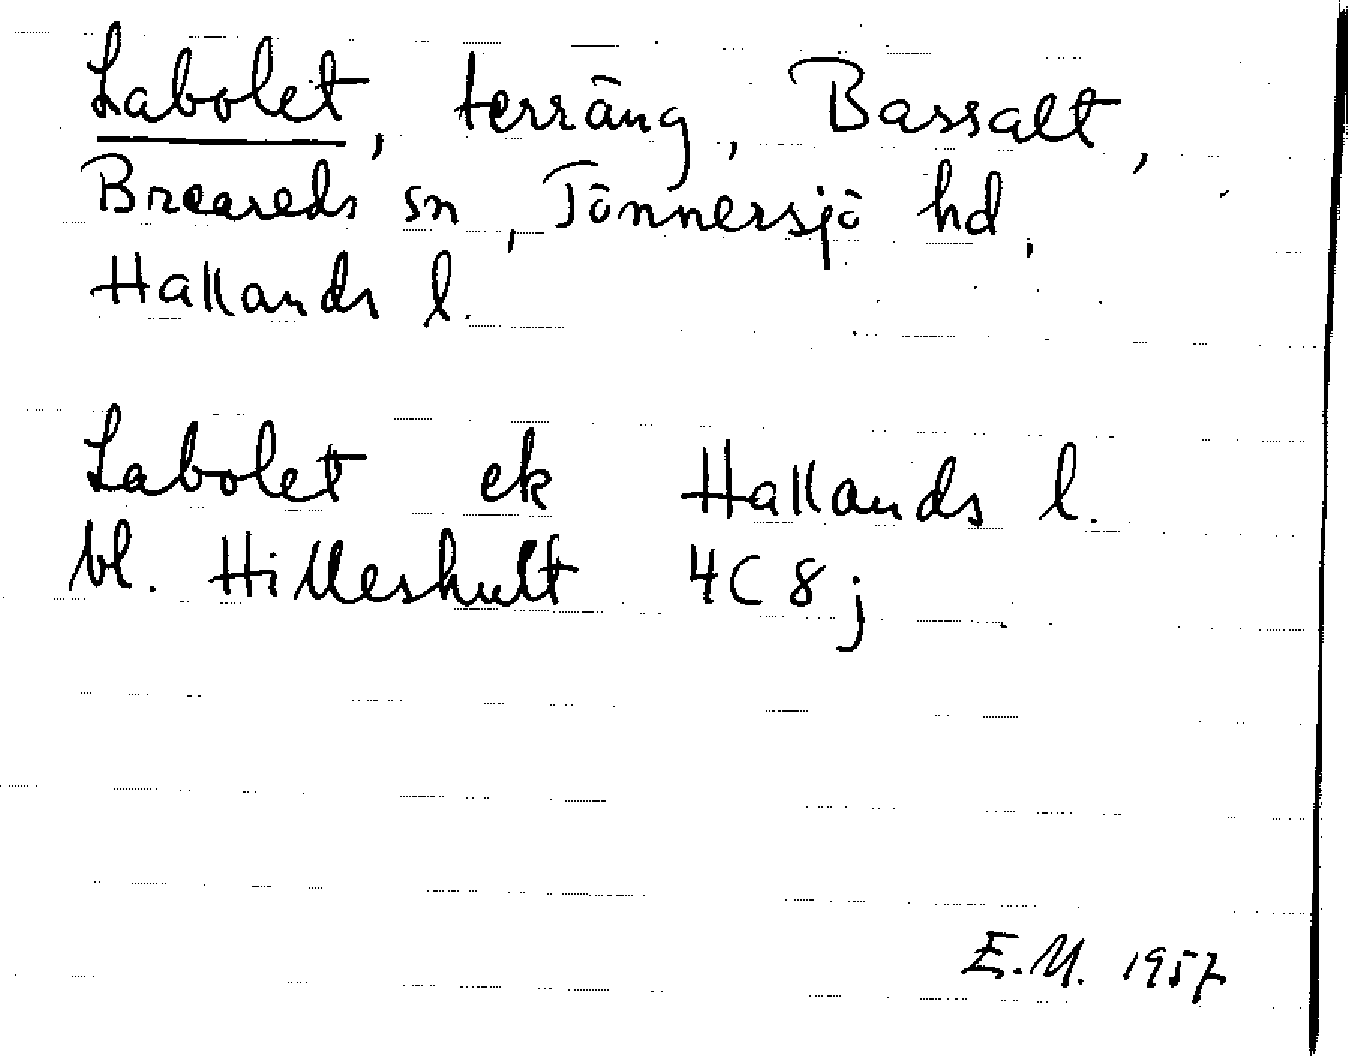 Labolet, terräng, Bassalt,
Breareds sn, Tönnersjö hd,
Hallands l.
Labolet ek Hallands l.
bl. Hilleshult 4C 8j
E.M. 1957